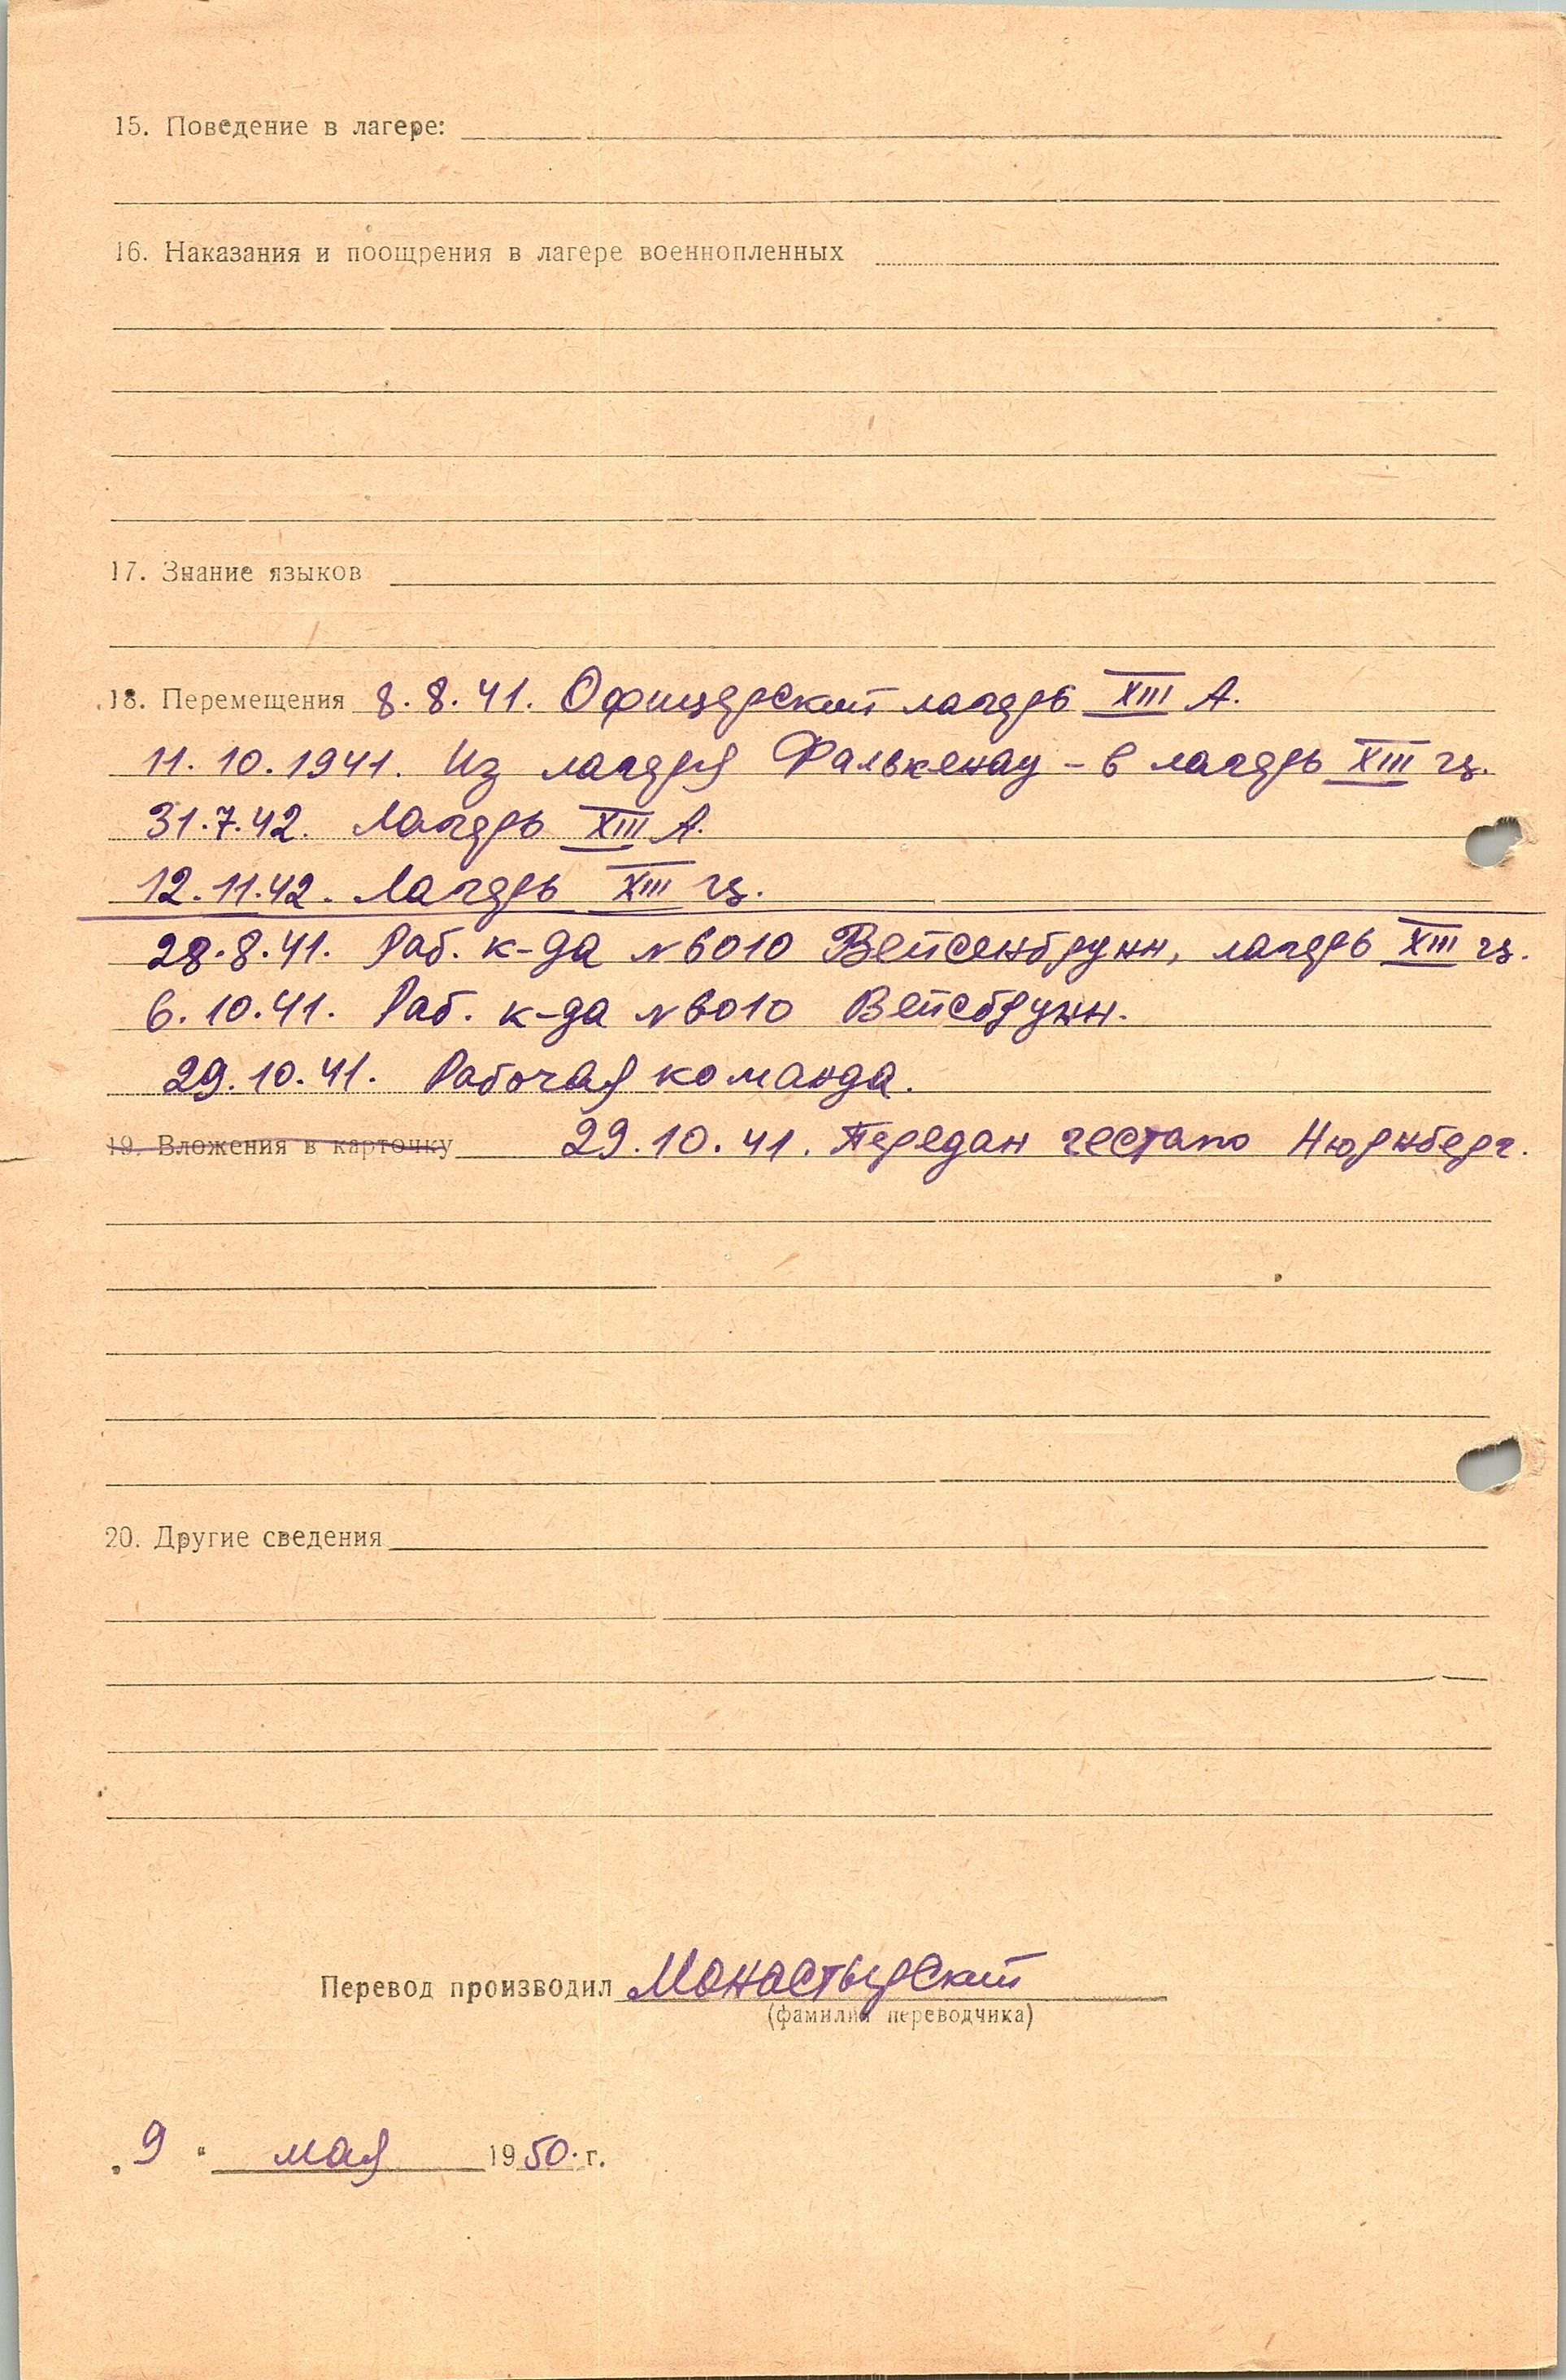 15. Поведение в лагере:
16. Наказания и поощрения в лагере военнопленных
17. Знание языков
18. Перемещения 8.8.41. Офицерский лагерь XIII А.
11.10.1941. Из лагеря Фалькенау - в лагерь XIII ц.
31.7.42. Лагерь XIII А.
12.11.42. Лагерь XIII ц.
28.8.41. Раб. к-да N 6010 Вейсенбрунн, лагерь XIII ц.
6.10.41. Раб. к-да N 6010 Вейсбрунн.
29.10.41. Рабочая команда.
19. Вложения в карточку 29.10.41. Передан гестапо Нюрнберг.
20. Другие сведения
Перевод производил Монастырский
(фамилия переводчика)
„9“ мая 1950 г.